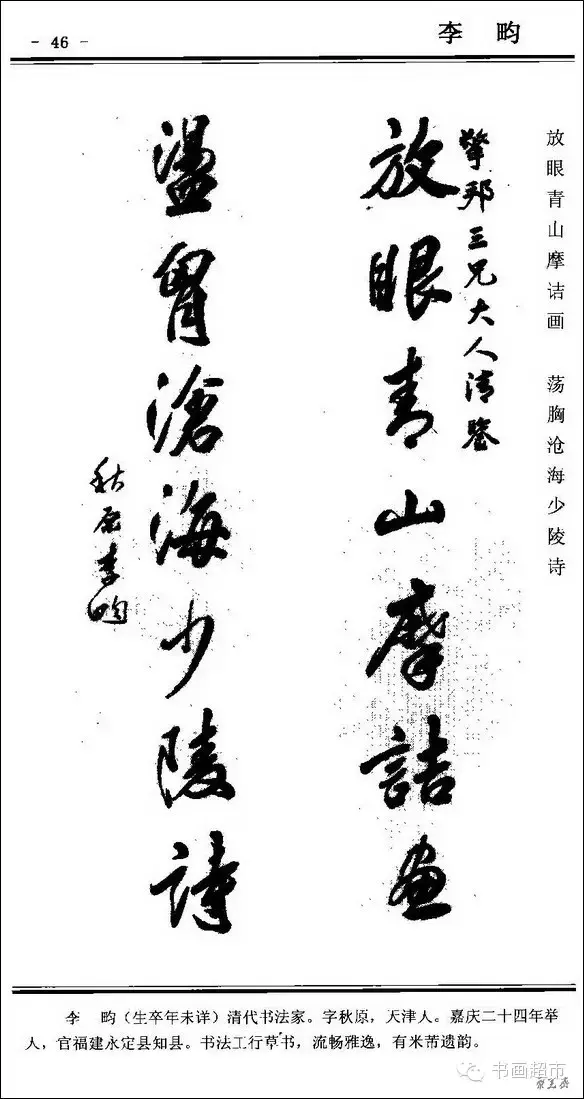 - 46 -
李 畇
放眼青山摩诘画 荡胸沧海少陵诗
擎邦三兄大人清鉴
放眼青山摩詰畫
盪胷滄海少陵詩
秋原李畇
李 畇(生卒年未详)清代书法家。字秋原,天津人。嘉庆二十四年举
人,官福建永定县知县。书法工行草书,流畅雅逸,有米苦遗韵。
书画超市